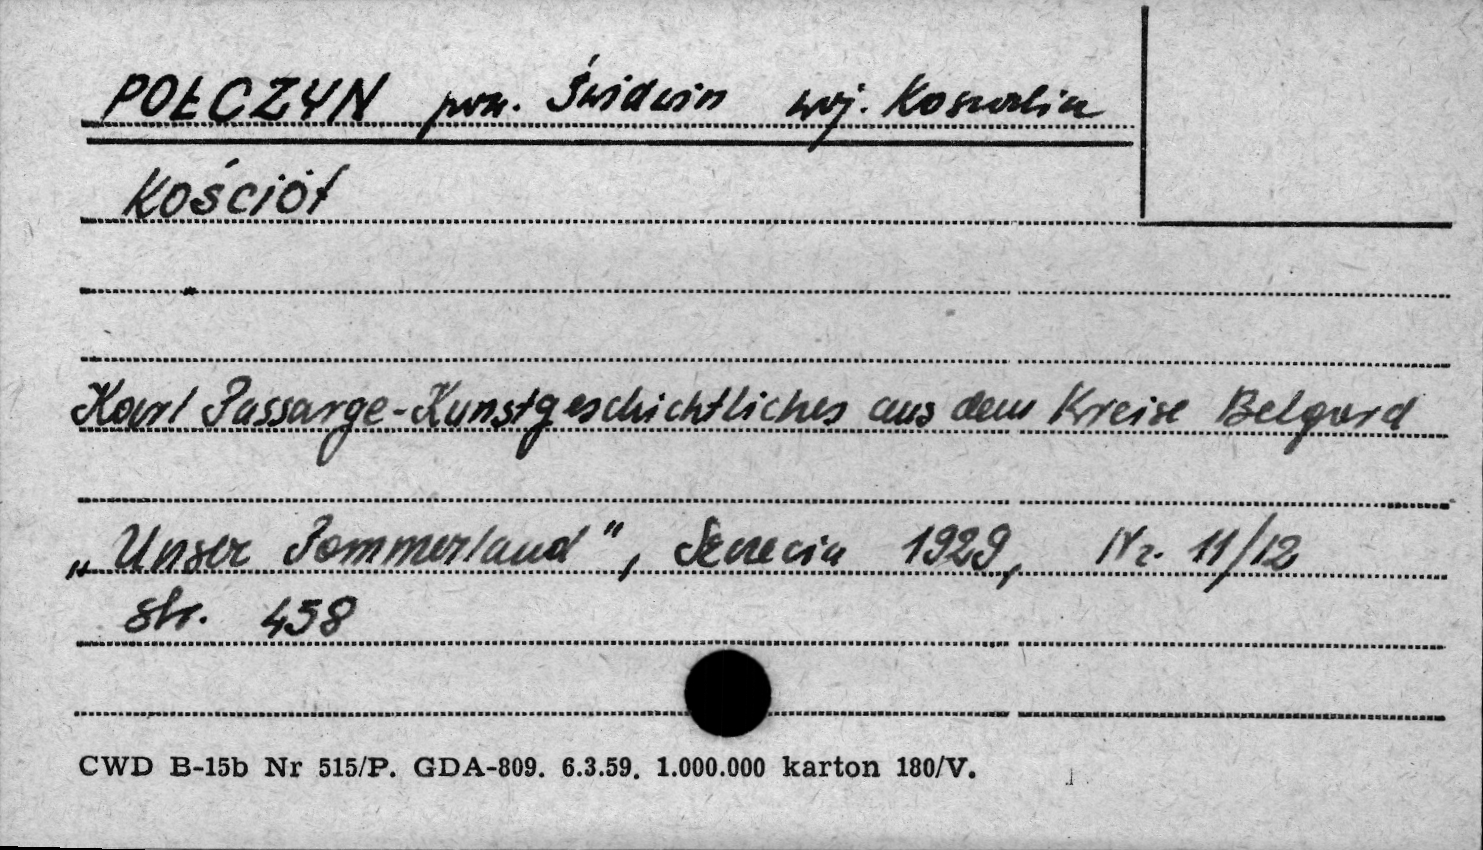 POŁCZYN pow. Świdwin woj. Koszalin
Kościół
Karl Passarge-Kunstgeschichtliches aus dem Kreise Belgard
„Unser Pommerland", Szczecin 1929, Nr. 11/12
str. 458
CWD B-15b Nr 515/P. GDA-809. 6.3.59. 1.000.000 karton 180/V.